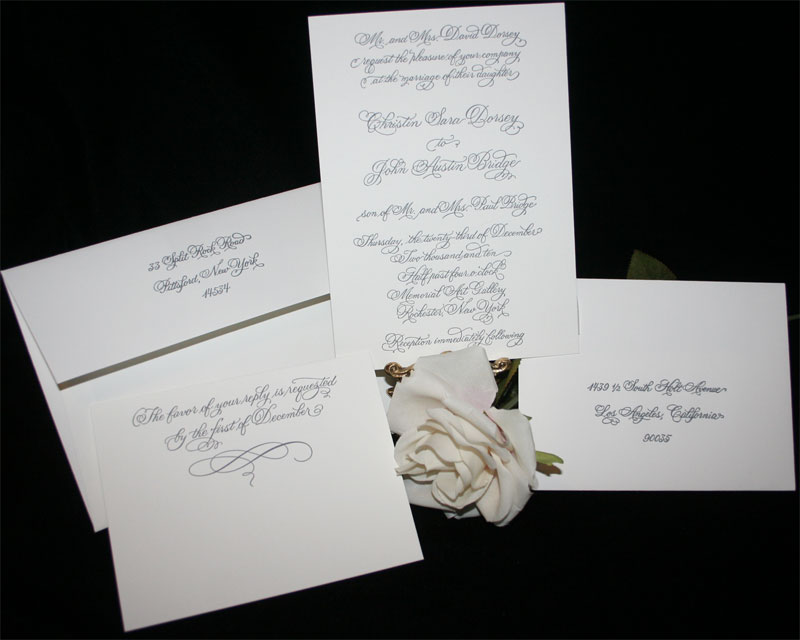 Mr. and Mrs. David Dorsey
request the pleasure of your company
at the marriage of their daughter
Christen Sara Dorsey
to
John Austin Bridge
son of Mr. and Mrs. Paul Bridge
Thursday, the twenty-third of December
Two thousand and ten
Half past four o'clock
Memorial Art Gallery
Rochester, New York
Reception immediately following
33 Split Rock Road
Pittsford, New York
14534
The favor of your reply is requested
by the first of December
1439 1/2 South Holt Avenue
Los Angeles, California
90035